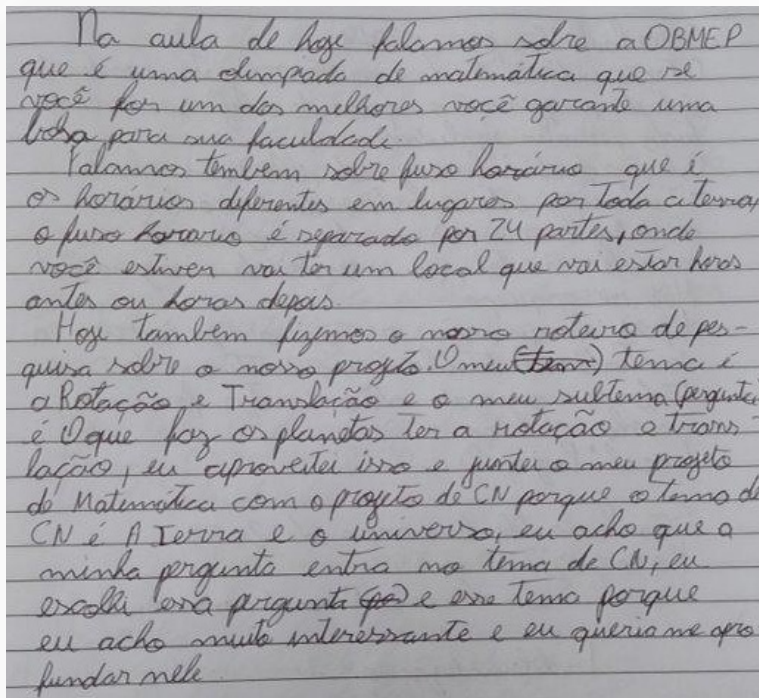 Na aula de hoje falamos sobre a OBMEP
que é uma olimpiada de matemática que se
você for um dos melhores você garante uma
bolsa para sua faculdade.
Falamos tembem sobre fuso horário que é
os horários diferentes em lugares por toda a terra,
o fuso horario é separado por 24 partes, onde
você estiver vai ter um local que vai estar horas
antes ou horas depois.
Hoje também fizemos o nosso roteiro de pes-
quisa sobre o nosso projeto. O meu (tem) tema é
a Rotação e Translação e o meu subtema (pergunta)
é O que faz os planetas ter a rotação e trans-
lação, eu aproveitei isso e juntei o meu projeto
de Matemática com o projeto de CN porque o tema de
CN é A Terra e o universo, eu acho que a
minha pergunta entra no tema de CN, eu
escolhi essa pergunta (po) e esse tema porque
eu acho muito interessante e eu queria me apro
fundar nele.